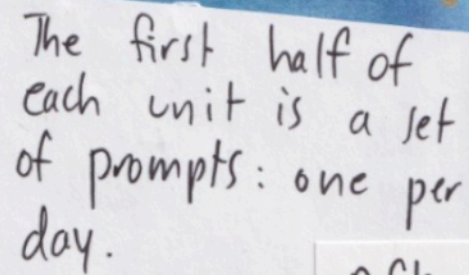 The first half of
each unit is a set
of prompts: one per
day.